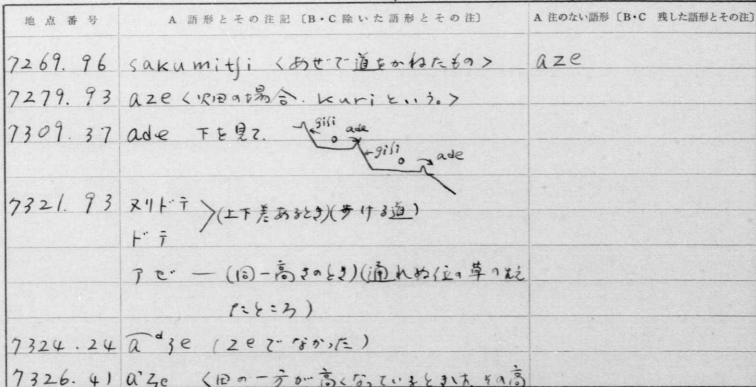 地点番号 A 語形とその注記〔B・C 除いた語形とその注〕 A 注のない語形〔B・C 残した語形とその注〕
7269.96 sakumitʃi 〈あぜで道をかねたもの〉 aze
7279.93 aze〈沢田の場合. kuriという。〉
7309.37 ade 下を見て.
giʃi ade
giʃi ade
7321.93 ヌリドテ
(上下差あるとき)(歩ける道)
ドテ
アゼ — (同一高さのとき)(通れぬ位の草の生え
たところ)
7324.24 aᵈʒe (zeでなかった)
7326.41 aze 〈田の一方が高くなっているとき